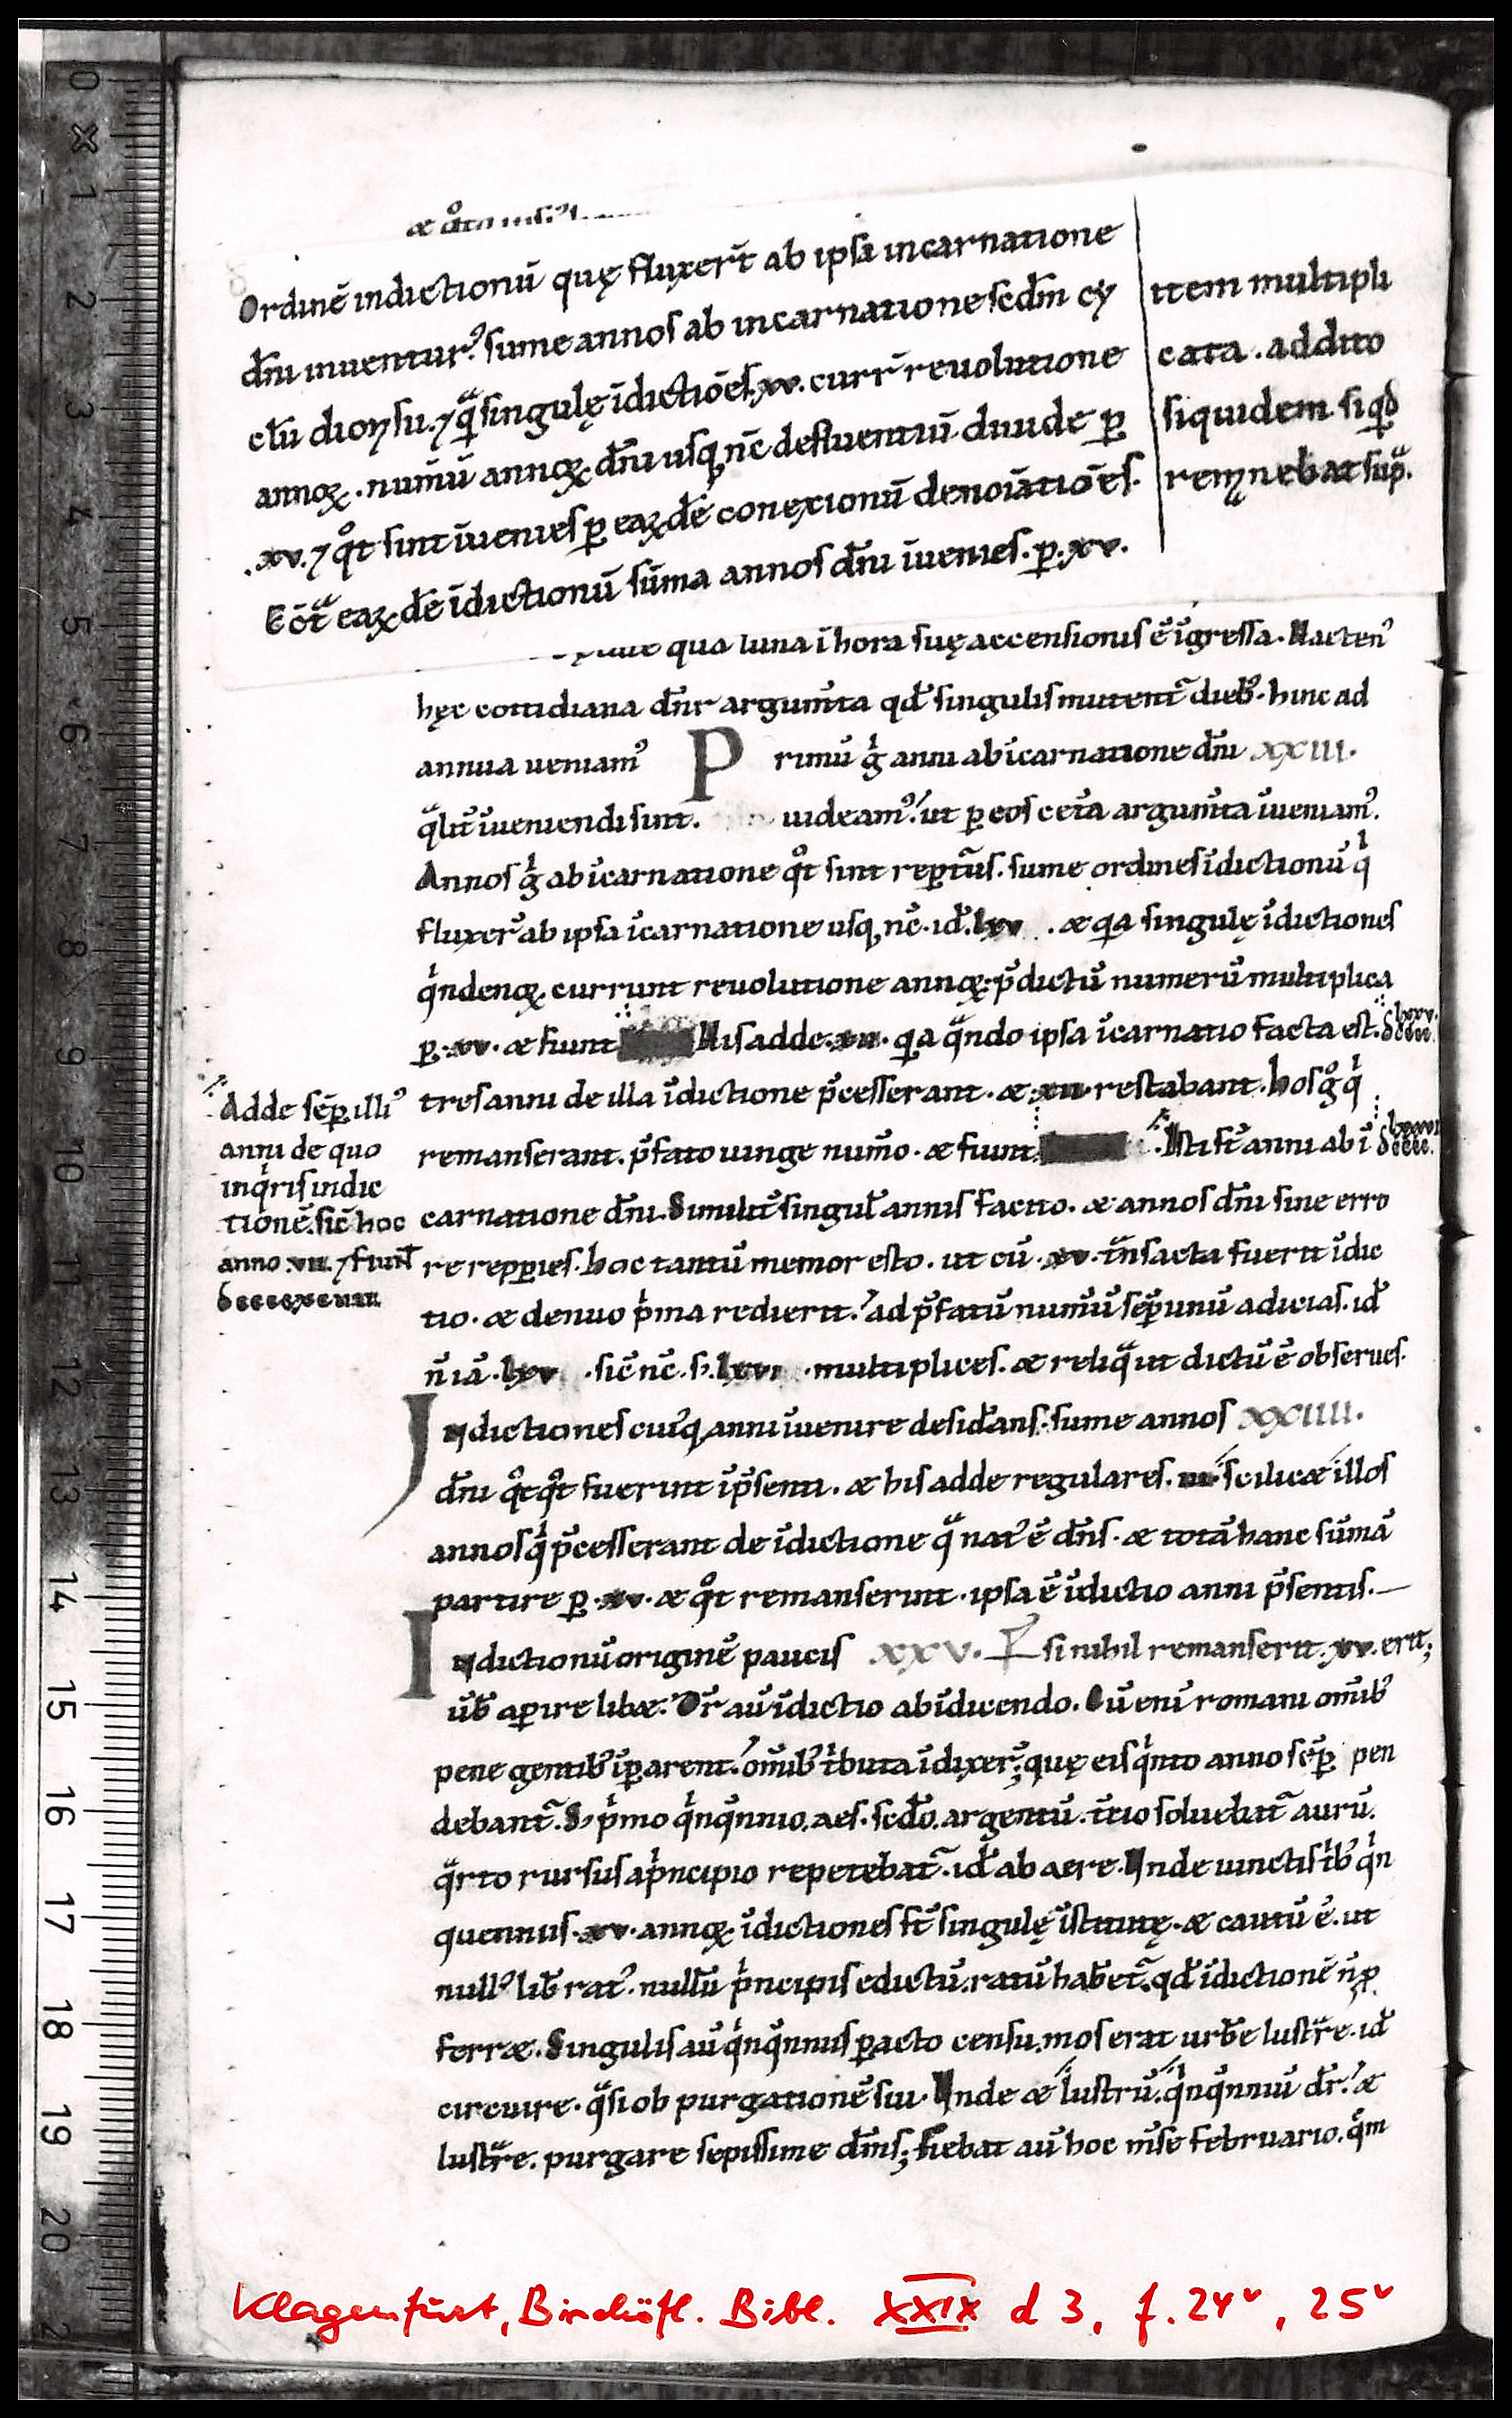 Ordinē indictionū quę fluxer̄t ab ipsa incarnatione
dn̄i inuentur᾽. sume annos ab incarnatione scd̄m cy
clū dionẏsii. ⁊ q̄a singulę īdictiōēs .xv. curr̄ reuolutione
annoꝝ. num̄ū annoꝝ dn̄i usq; nc̄ defluentiū diuide ꝑ
.xv. ⁊ qͦt sint īuenies ꝑ eaꝝdē conexionū denoīatiōēs.
Ecōt̄ᵃ eaꝝdē īdictionū sūma annos dn̄i īuenies. ꝑ .xv.
item multipli
cata. addito
siquidem si qͥd
remanebat supᵃ.
qua luna ī hora suę accensionis ē īgressa. Hacten᾽
hęc cottidiana dn̄r argum̄ta qd̄ singulis mutent᷑ dieb᾽. hinc ad
annua ueniam᾽ Primū gͥ anni ab īcarnatione dn̄i XXIII.
q̄lit᷑ īueniendi sunt. uideam᾽. ut ꝑ eos cet᷑a argum̄ta īueniam᾽.
Annos gͥ ab īcarnatione qͦt sint repert᷑us. sume ordines īdictionū qͥ
fluxer᷑ ab ipsa īcarnatione usq; nc̄. id̄. lxv . & qa singulę īdictiones
qͥndenoꝝ currunt reuolutione annoꝝ. p̄dictū numerū multiplica
ꝑ .xv. & fiunt His adde .xii. qa qᵃndo ipsa īcarnatio facta est. dcccc lxxv.
tres anni de illa īdictione p̄cesserant. & .xii. restabant. hos gͦ qͥ
remanserant. p̄fato iunge num̄o. & fiunt . Isti st̄ anni ab ī dcccc
Adde sēꝑ illi᾽
anni de quo
inqͥris indic
tionē. sic̄ hoc
anno .vii. ⁊ fiunt
dccccxciiii
carnatione dn̄i. Similit᷑ singul̄ annis facito. & annos dn̄i sine erro
re repꝑies. hoc tantū memor esto. ut cū .xv. t᷑nsacta fuerit īdic
tio. & denuo pͥma redierit. ad p̄fatū num̄ū sēꝑ unū adicias. id̄
n̄ iā .lxv . sic̄ nc̄. s; .lxvi . multiplices. & reliqᵃ ut dictū ē obserues.
Indictiones cui᾽q; anni īuenire desid᷑ans. sume annos XXIIII.
dn̄i qͦtqͦt fuerint īp̄senti. & his adde regulares. iii. scilic& illos
annos qͥ p̄cesserant de īdictione qᵃ nat᾽ ē dn̄s. & totā hanc sūmā
partire ꝑ .xv. & qͦt remanserint. ipsa ē īdictio anni p̄sentis.
Indictionū originē paucis XXV. si nihil remanserit .xv. erit;
ūb᷑ aꝑire lib&. Dr̄ au᷑ īdictio ab īdicendo. Cū enī romani om̄ib᾽
pene gentib᾽ īꝑarent. om̄ib᾽ tͥbuta īdixer᷑; quę eis qͥnto anno sēꝑ pen
debant᷑. S; pͥmo qͥnqᵉnnio. aes. scd̄o. argentū. t᷑tio soluebat᷑ aurū.
qᵃrto rursus a pͥncipio repetebat᷑. id̄ ab aere. Unde uinctis tͥb᾽ qͥn
quenniis .xv. annoꝝ īdictiones st̄ singulę īstitutę. & cautū ē. ut
null᾽ lib᷑ rat᾽. nullū pͥncipis edictū. ratū hab᷑et᷑. qd̄ īdictionē n̄ p̲
ferr&. Singulis au᷑ qͥnqᵉnniis ꝑacto censu. mos erat urb᷑e lustᵃre. id̄
circuire. qᵃsi ob purgationē sui. Unde & lustrū. qͥnqᵉnniū dr̄. &
lustᵃre. purgare sepissime dn̄s; fiebat au᷑ hoc m̄se februario. qͦm
Klagenfurt, Bischöfl. Bibl. XXIX d 3, f. 24ᵛ, 25ᵛ